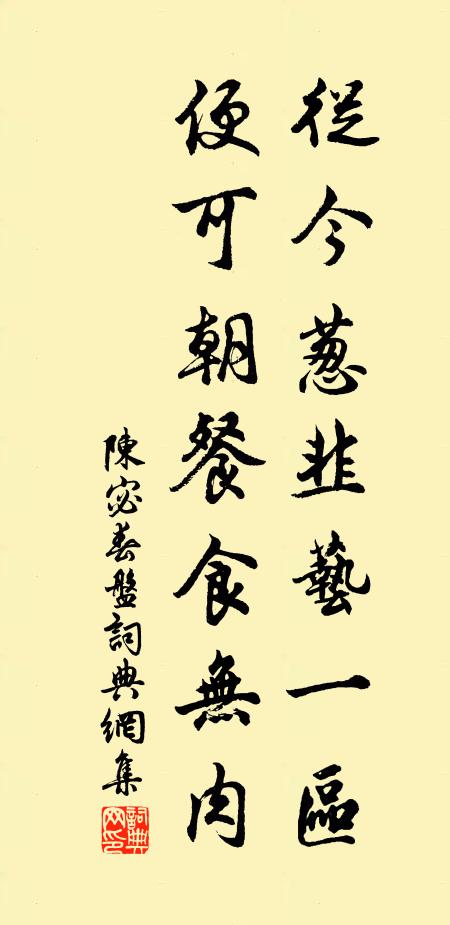 從今葱韭藝一區
便可朝餐食無肉
陳宓春盤詞典網集
詞典網印